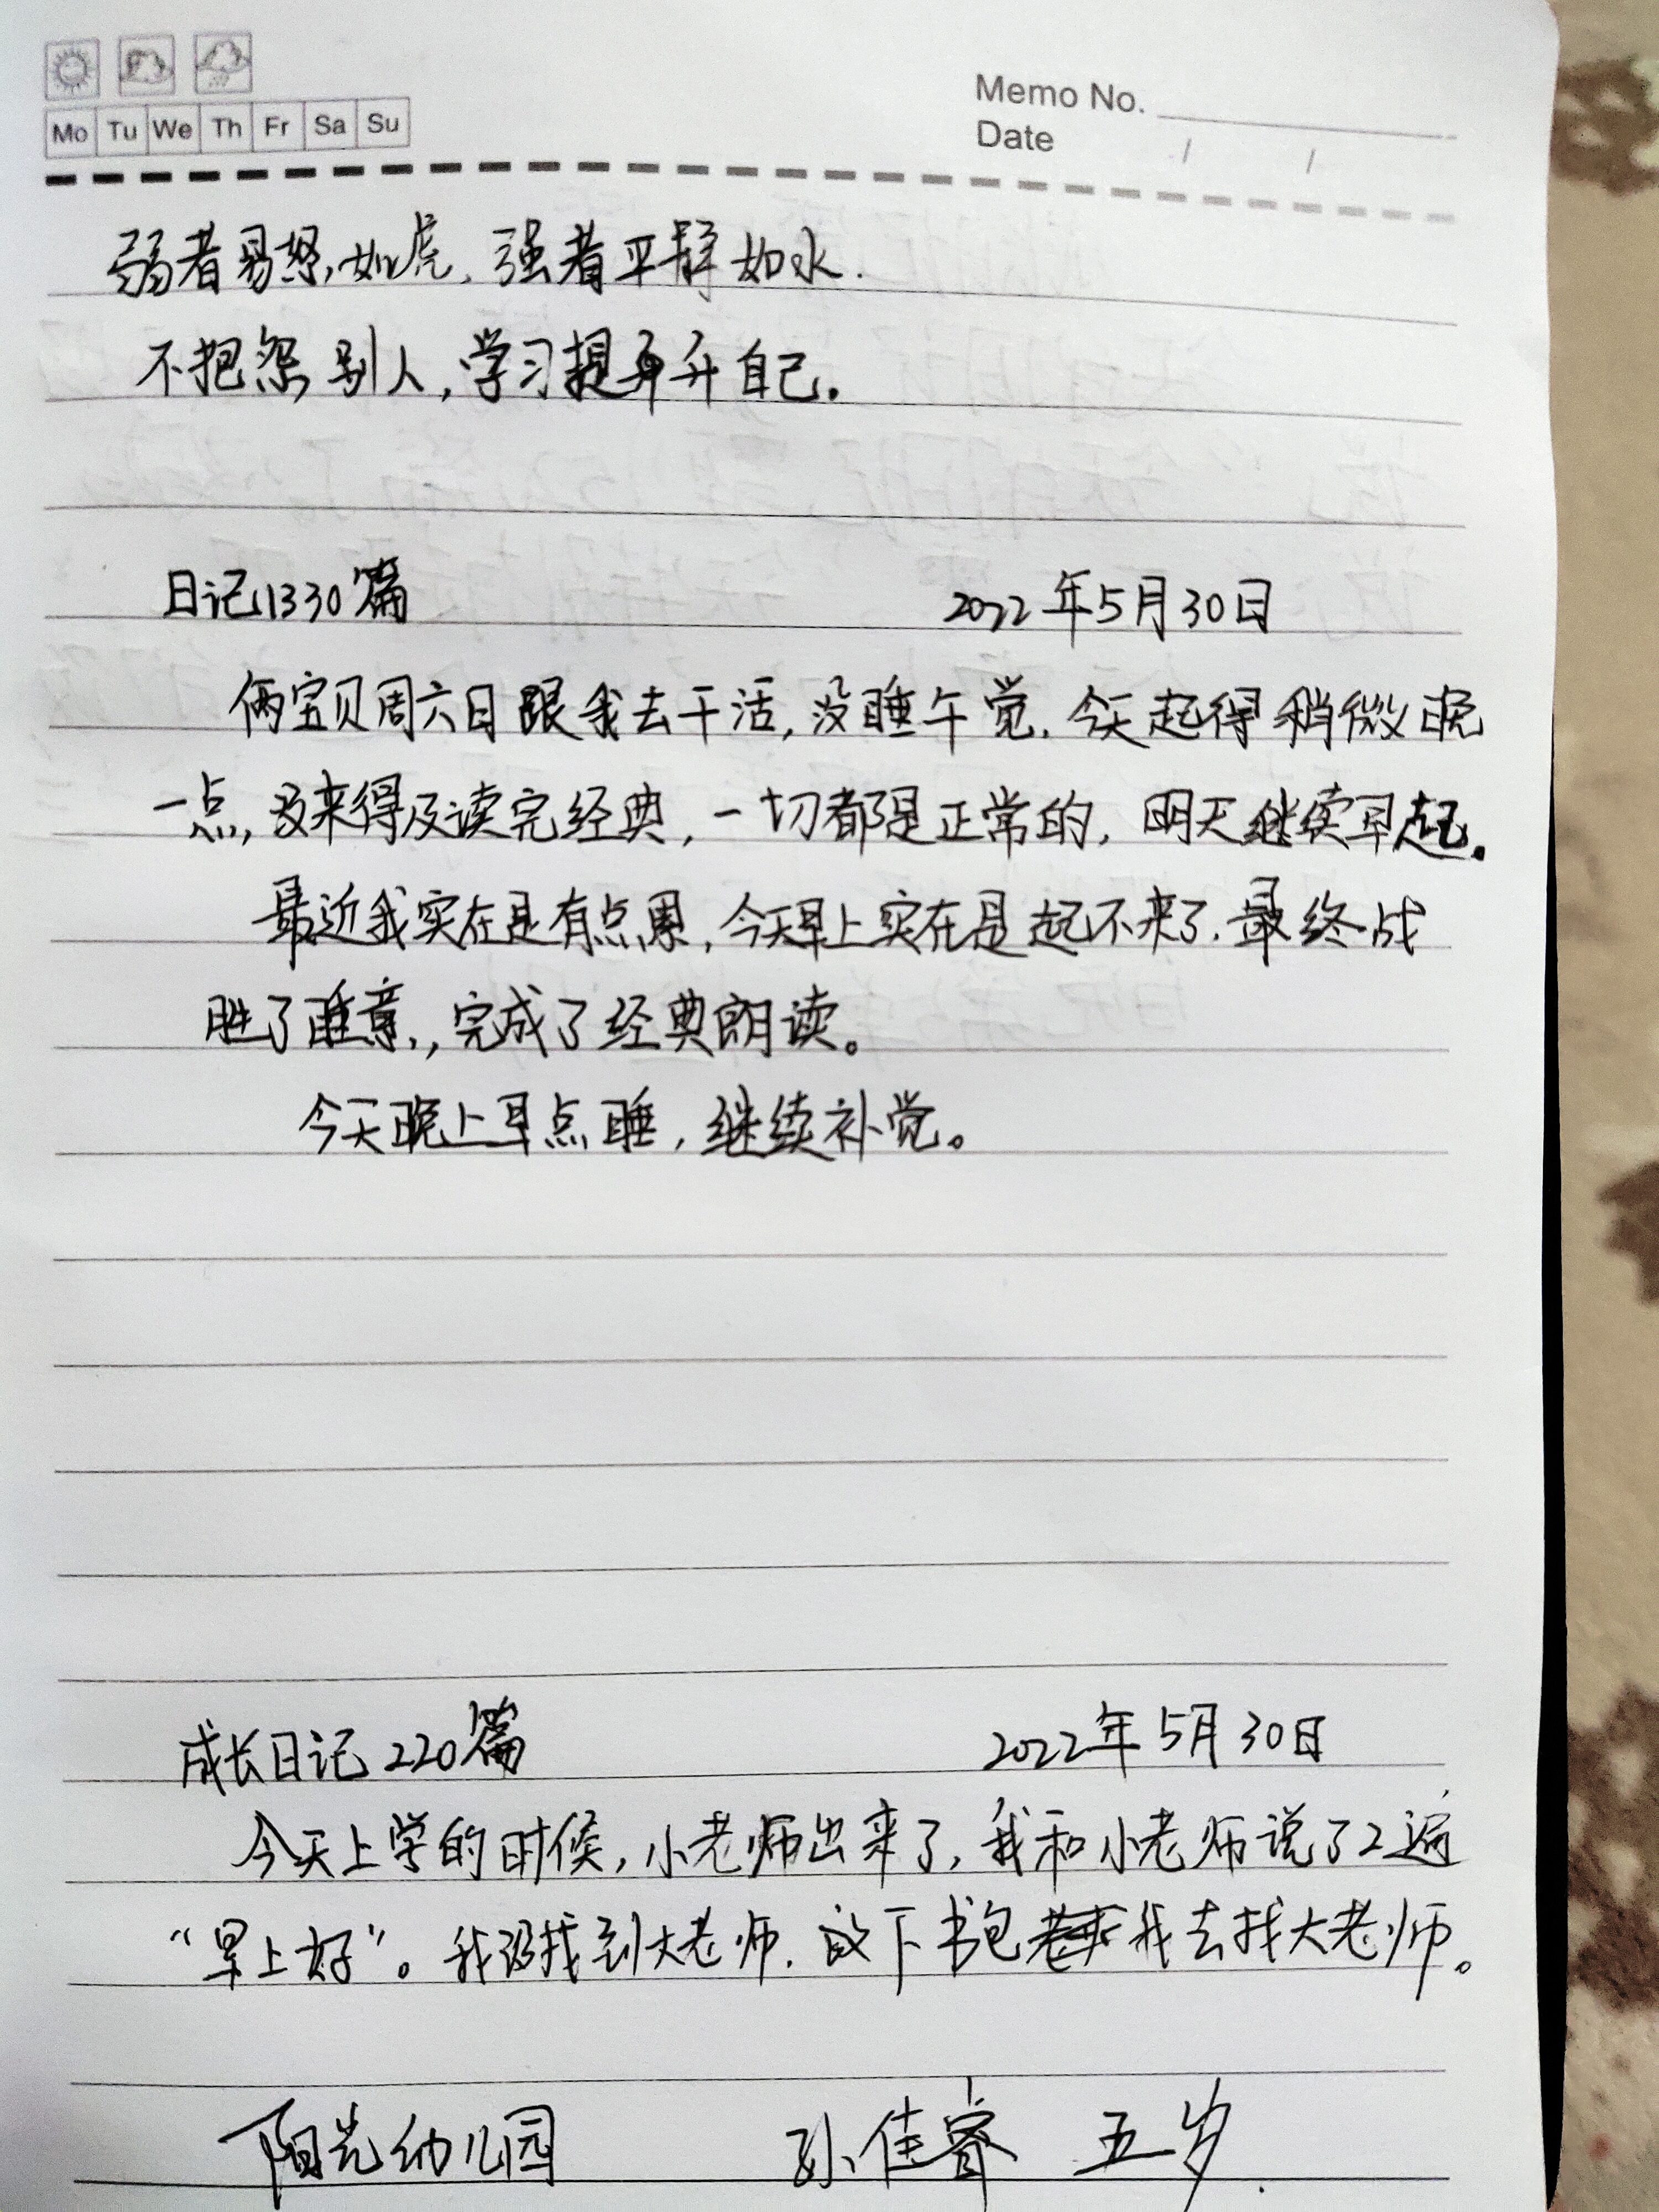 Memo No.
Mo Tu We Th Fr Sa Su
Date / /
弱者易怒,如虎,强者平静如水.
不抱怨别人,学习提升自己.
日记1330篇 2022年5月30日
俩宝贝周六日跟我去干活,没睡午觉.今天起得稍微晚
一点,没来得及读完经典,一切都是正常的,明天继续早起。
最近我实在是有点累,今天早上实在是起不来了.最终战
胜了睡意,,完成了经典朗读。
今天晚上早点睡,继续补觉。
成长日记220篇 2022年5月30日
今天上学的时候,小老师出来了,我和小老师说了2遍
“早上好”。我没找到大老师.放下书包我去找大老师。
阳光幼儿园 孙佳睿 五岁.